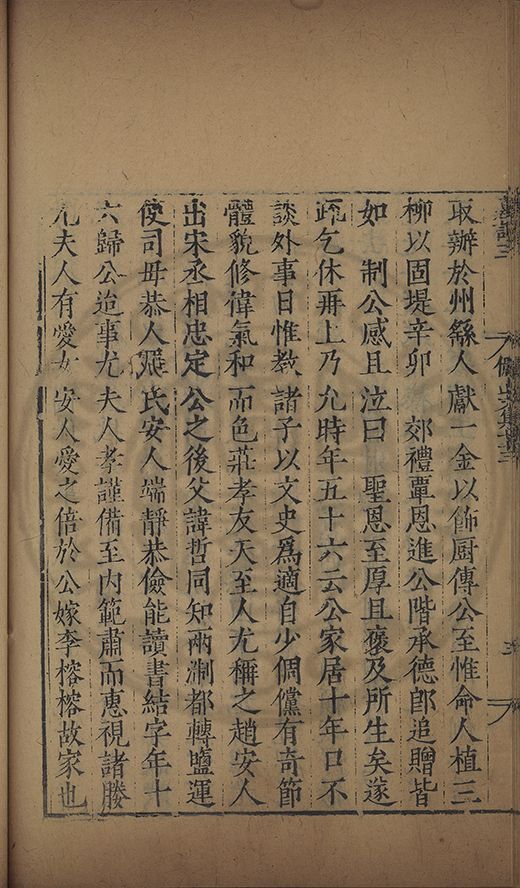 取辦於州縣人獻一金以飾厨傳公至惟命人植三
柳以固堤辛卯　郊禮覃恩進公階承德郎追贈皆
如　制公感且泣曰　聖恩至厚且褒及所生矣遂
疏乞休再上乃　允時年五十六云公家居十年口不
談外事日惟教諸子以文史爲適自少倜儻有奇節
體貌修偉氣和而色莊孝友天至人尤稱之趙安人
出宋丞相忠定公之後父諱哲同知兩淛都轉鹽運
使司母恭人氏安人端靜恭儉能讀書結字年十
六歸公逈事尤夫人孝謹備至内範肅而惠視諸媵
尤夫人有愛女安人愛之倍於公嫁李榕榕故家也